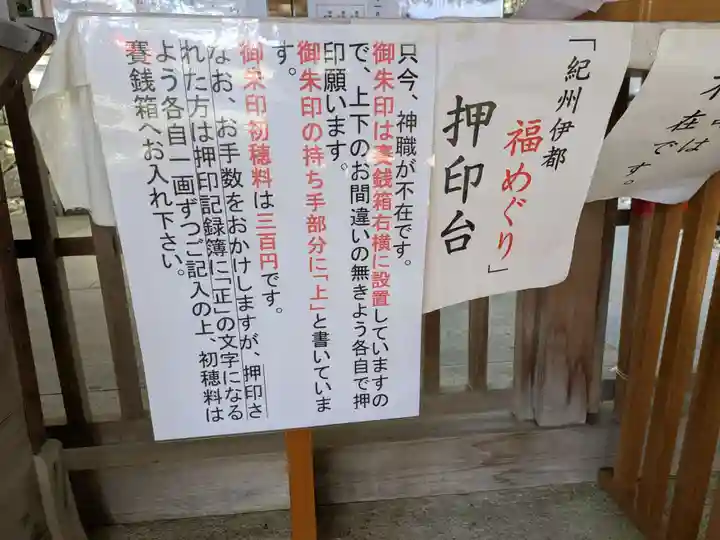 「紀州伊都
福めぐり」
押印台
只今、神職が不在です。
御朱印は賽銭箱右横に設置していますの
で、上下のお間違いの無きよう各自で押
印願います。
御朱印の持ち手部分に「上」と書いていま
す。
御朱印初穂料は三百円です。
なお、お手数をおかけしますが、押印さ
れた方は押印記録簿に「正」の文字になる
よう各自一画ずつご記入の上、初穂料は
賽銭箱へお入れ下さい。
在です。